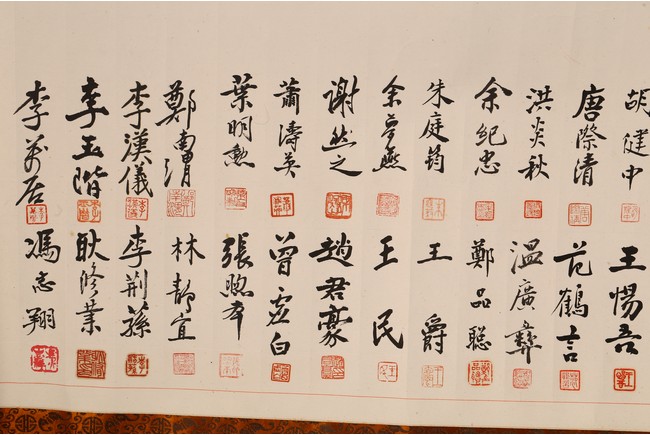 胡健中
唐際清
洪炎秋
余紀忠
朱庭筠
余夢燕
謝然之
蕭濤英
葉明勳
鄭南渭
李漢儀
李玉階
李萬居
王惕吾
范鶴言
溫廣彝
鄭品聰
王爵
王民
趙君豪
曾虛白
張煦本
林靜宜
李荆蓀
耿修業
馮志翔